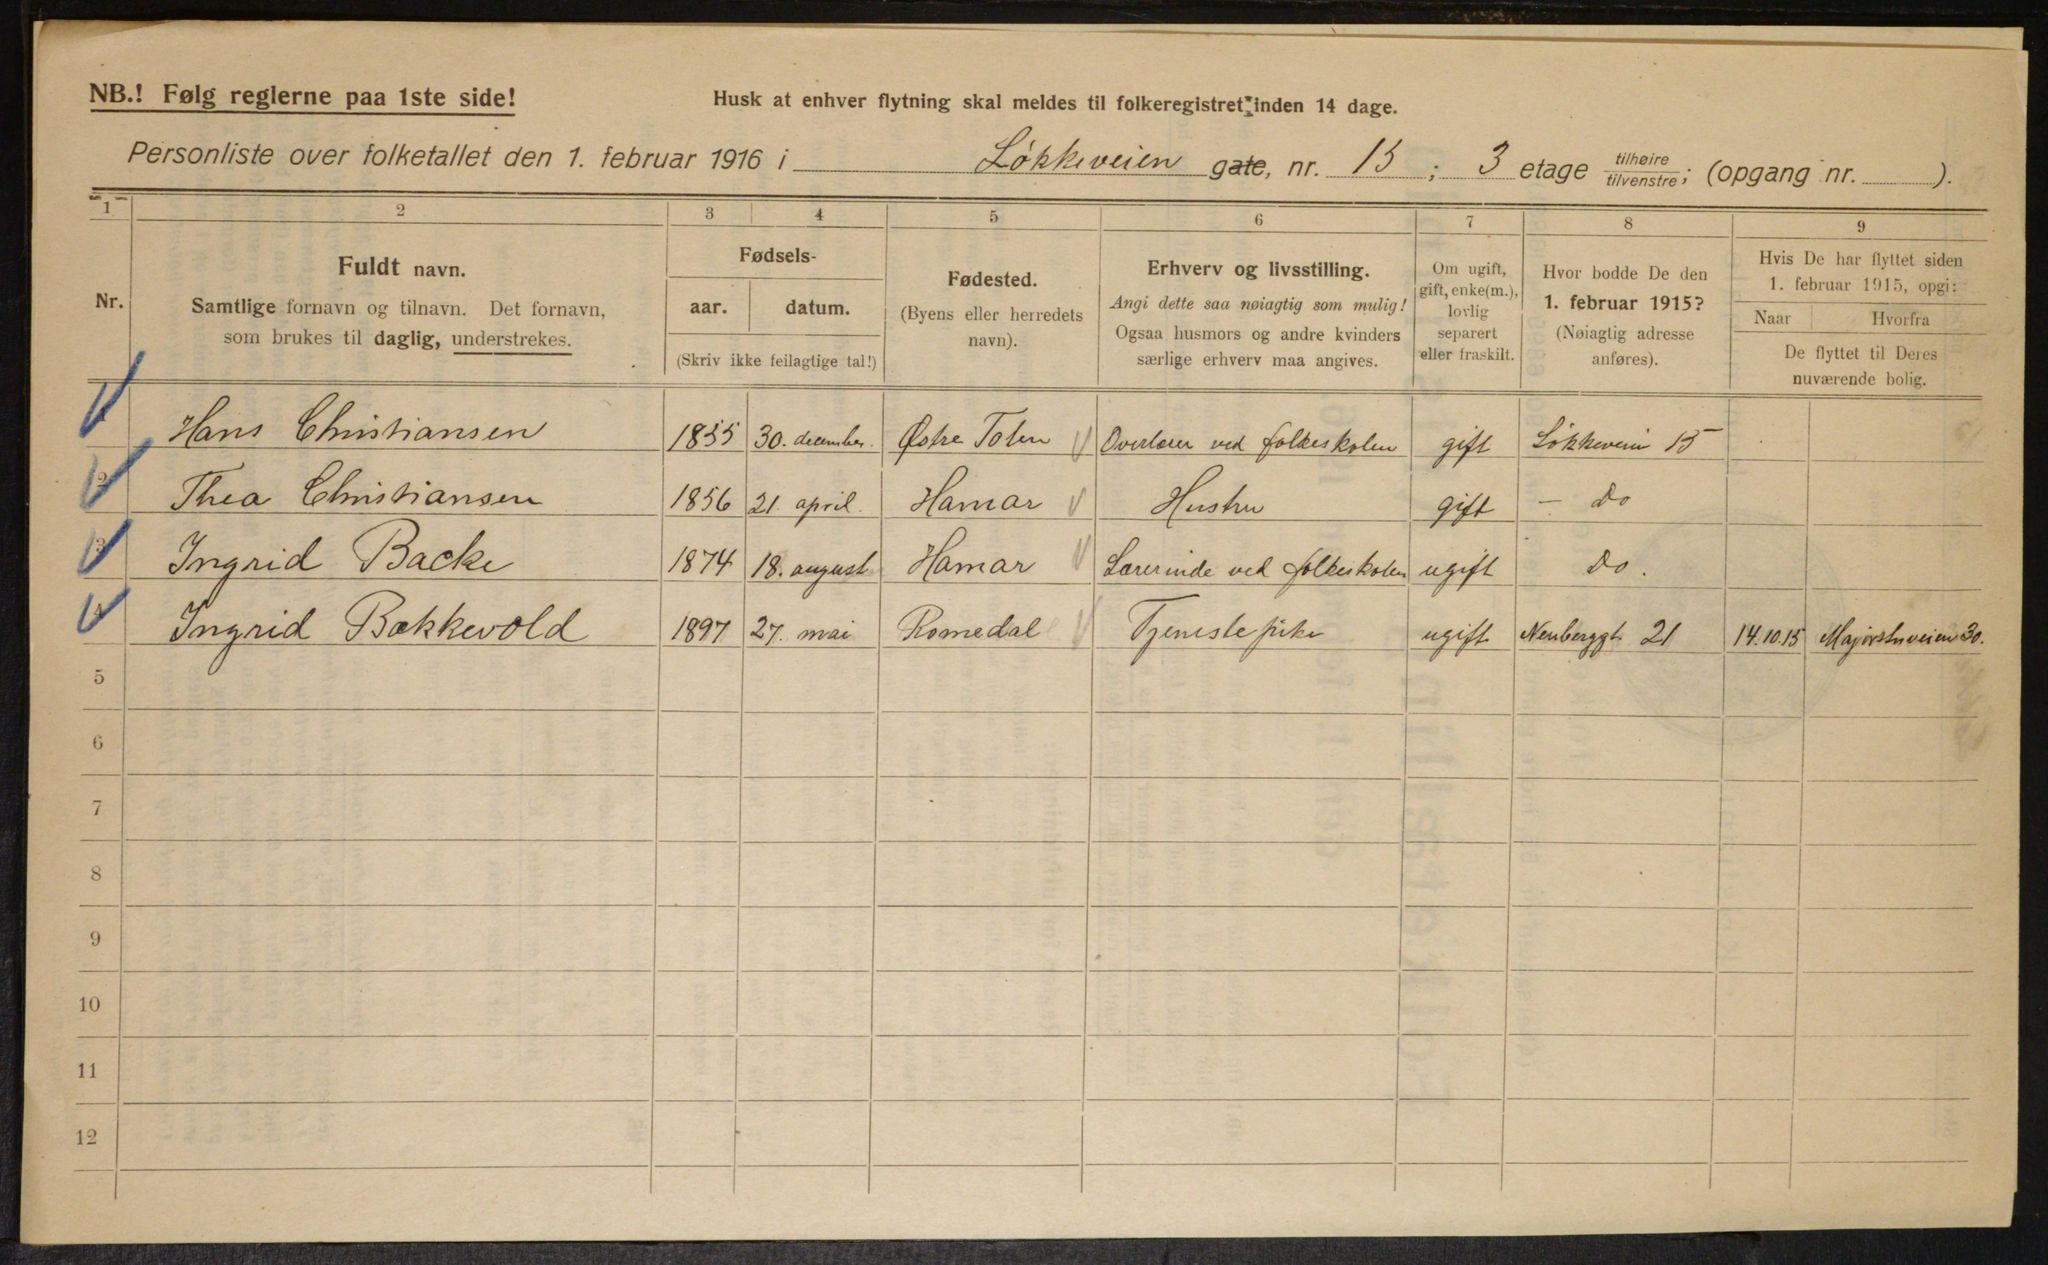 NB.! Følg reglerne paa 1ste side!
Husk at enhver flytning skal meldes til folkeregistret inden 14 dage.
Personliste over folketallet den 1. februar 1916 i Løkkeveien gate, nr. 15; 3 etage tilhøire tilvenstre; (opgang nr. ).
1 2 3 4 5 6 7 8 9
Nr.
Fuldt navn.
Samtlige fornavn og tilnavn. Det fornavn,
som brukes til daglig, understrekes.
Fødsels-
aar. datum.
(Skriv ikke feilagtige tal!)
Fødested.
(Byens eller herredets
navn).
Erhverv og livsstilling.
Angi dette saa nøiagtig som mulig!
Ogsaa husmors og andre kvinders
særlige erhverv maa angives.
Om ugift,
gift, enke(m.),
lovlig
separert
eller fraskilt.
Hvor bodde De den
1. februar 1915?
(Nøiagtig adresse
anføres).
Hvis De har flyttet siden
1. februar 1915, opgi:
Naar Hvorfra
De flyttet til Deres
nuværende bolig.
1 Hans Christiansen 1855 30. december. Østre Toten Overlærer ved folkeskolen gift Løkkeveien 15
2 Thea Christiansen 1856 21. april. Hamar Hustru gift — Do
3 Ingrid Backe 1874 18. august Hamar Lærerinde ved folkeskolen ugift Do.
4 Ingrid Bækkevold 1897 27. mai Romedal Tjenestepike ugift Neuberggt. 21 14.10.15 Majorstuveien 30.
5
6
7
8
9
10
11
12